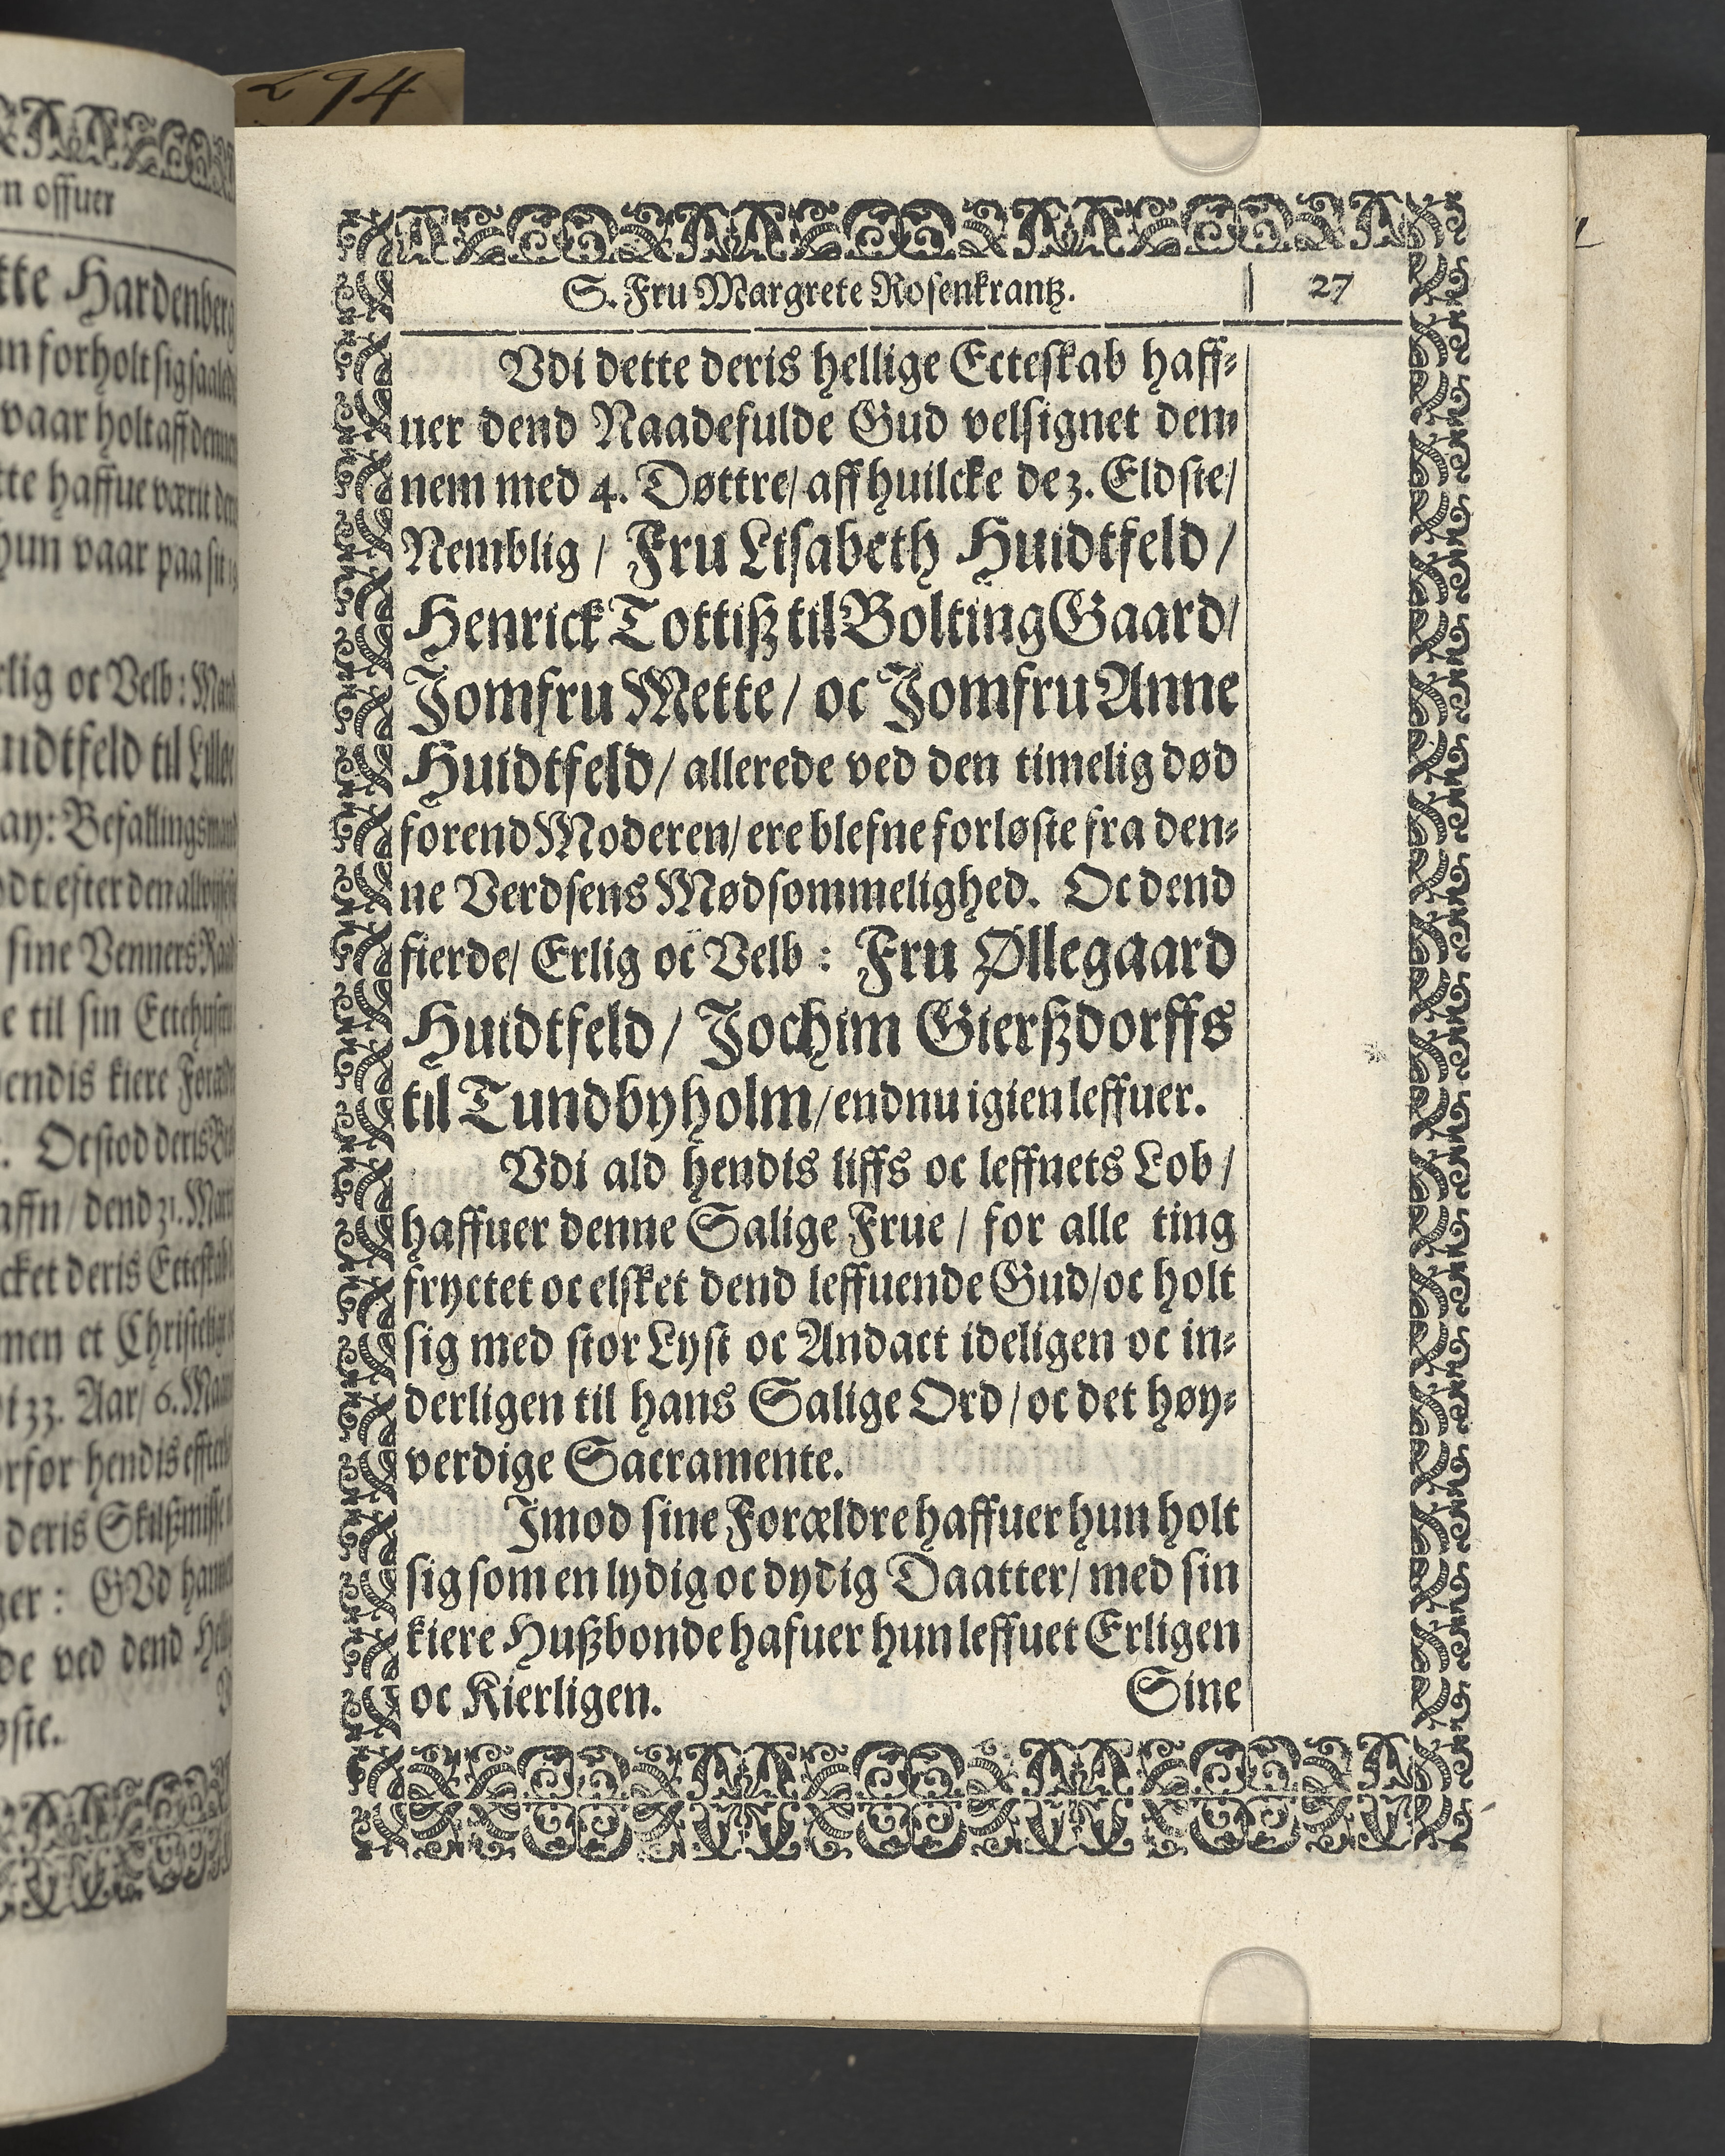 294
en offuer
tte Hardenberg
un forholt sig saaled
vaar holt aff dennem
tte haffue værit den
hun vaar paa sit
rlig oc Velb: Mand
uidtfeld til Lille
ay: Befallingsmand
odt efter den allvijsis
sine Venners Raad
e til sin Ectehusfru
endis kiere Foræld
. Oc stod deris
affn/ dend 31. Mart
cket deris Ecteskab
men et Christeligt
t 33. Aar/ 6. Maan
rfor hendis effter
deris Skilßmisse
ger: GVd hannem
de ved dend Hell
øste.
S. Fru Margrete Rosenkrantz. 27
Vdi dette deris hellige Ecteskab haff⸗
uer dend Naadefulde Gud velsignet dem⸗
nem med 4. Døttre/ aff huilcke de 3. Eldste/
Nemblig / Fru Lisabeth Huidtfeld /
Henrick Tottiß til Bolting Gaard/
Jomfru Mette / oc Jomfru Anne
Huidtfeld/ allerede ved den timelig død
forend Moderen/ ere blefne forløste fra den⸗
ne Verdsens Mødsommelighed. Oc dend
fierde/ Erlig oc Velb : Fru Øllegaard
Huidtfeld / Jochim Gierßdorffs
til Tundbyholm/ endnu igien leffuer.
Vdi ald hendis liffs oc leffnets Lob /
haffuer denne Salige Frue / for alle ting
fryctet oc elsket dend leffuende Gud/ oc holt
sig med stor Lyst oc Andact ideligen oc in⸗
derligen til hans Salige Ord / oc det høy⸗
verdige Sacramente.
Jmod sine Forældre haffuer hun holt
sig som en lydig oc dydig Daatter/ med sin
kiere Hußbonde hafuer hun leffuet Erligen
oc Kierligen. Sine